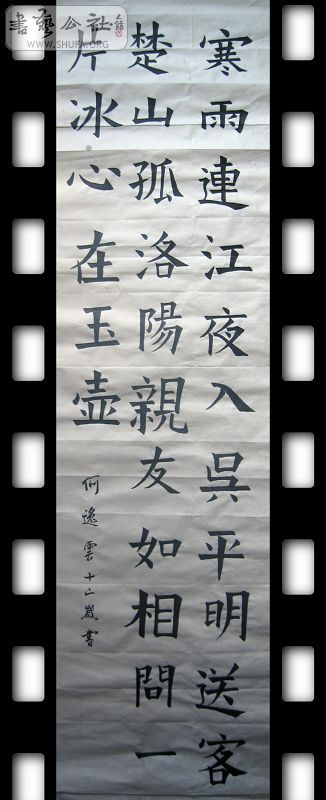 書藝公社
WWW.SHUFA.ORG
寒雨連江夜入吳平明送客
楚山孤洛陽親友如相問一
片冰心在玉壺
何逸雲十二歲書